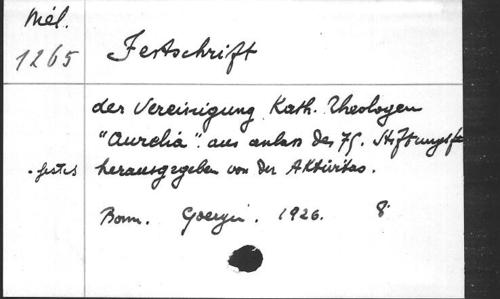 Mél.
1265
Festschrift
der Vereinigung Kath. Theologen
"Aurelia" aus anlass des 75. Stiftungsfe
-festes herausgegeben von der Aktivitas.
Bonn. 1926. 8°